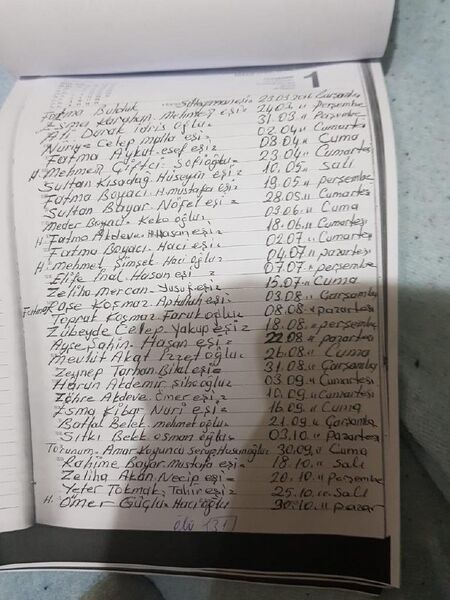 1
Fatma Bulduk Süleyman eşi 23.03.2016 Çarşamba
Esma Karahan Mehmet eşi 24.03 " perşembe
Ali Durak idris oğlu 31.03 " Perşembe
Nuriye Celep eşi 02.04 " Cumartesi
Fatma Aykut esef eşi 08.04 " Cuma
H. Mehmet Çiftçi Sofuoğlu 23.04 " Cumartesi
Sultan Kısadağ Hüseyin eşi 10.05 " Salı
Fatma Boyacı H. mustafa eşi 19.05 " perşembe
Sultan Bayar Nofel eşi 28.05 " Cumartesi
meder Boyacı Keko oğlu 03.06 " Cuma
H. Fatma Akdeve H. Hasan eşi 18.06 " Cumartesi
Fatma Boyacı Hacı eşi 02.07 " Cumartesi
H. Mehmet Şimşek Hacı oğlu 04.07 " pazartesi
Elife İnal Hasan eşi 07.07 " perşembe
Zeliha Mercan Yusuf eşi 15.07 " Cuma
Fatma Koşmaz Aptullah eşi 03.08 " Çarşamba
Toprak Koşmaz Faruk oğlu 08.08 " pazartesi
Zübeyde Celep Yakup eşi 18.08 " perşembe
Ayşe Şahin Hasan eşi 22.08 " pazartesi
Mevlüt Akat İzzet oğlu 26.08 " Cuma
Zeynep Tarhan Bilal eşi 31.08 " Çarşamba
Harun Akdemir oğlu 03.09 " Cumartesi
Zöhre Akdeve Ömer eşi 10.09 " Cumartesi
Esma Kibar Nuri eşi 16.09 " Cuma
Battal Belek mehmet oğlu 21.09 " Çarşamba
Sıtkı Belek osman oğlu 03.10 " Pazartesi
Torunum Amar Koyuncu 30.09 " Cuma
Rahime Bayar Mustafa eşi 18.10 " Salı
Zeliha Akan Necip eşi 20.10 " perşembe
Yeter Tokmak Tahir eşi 25.10 " Salı
H. Ömer Güçlü Hacı oğlu 30.10 " pazar